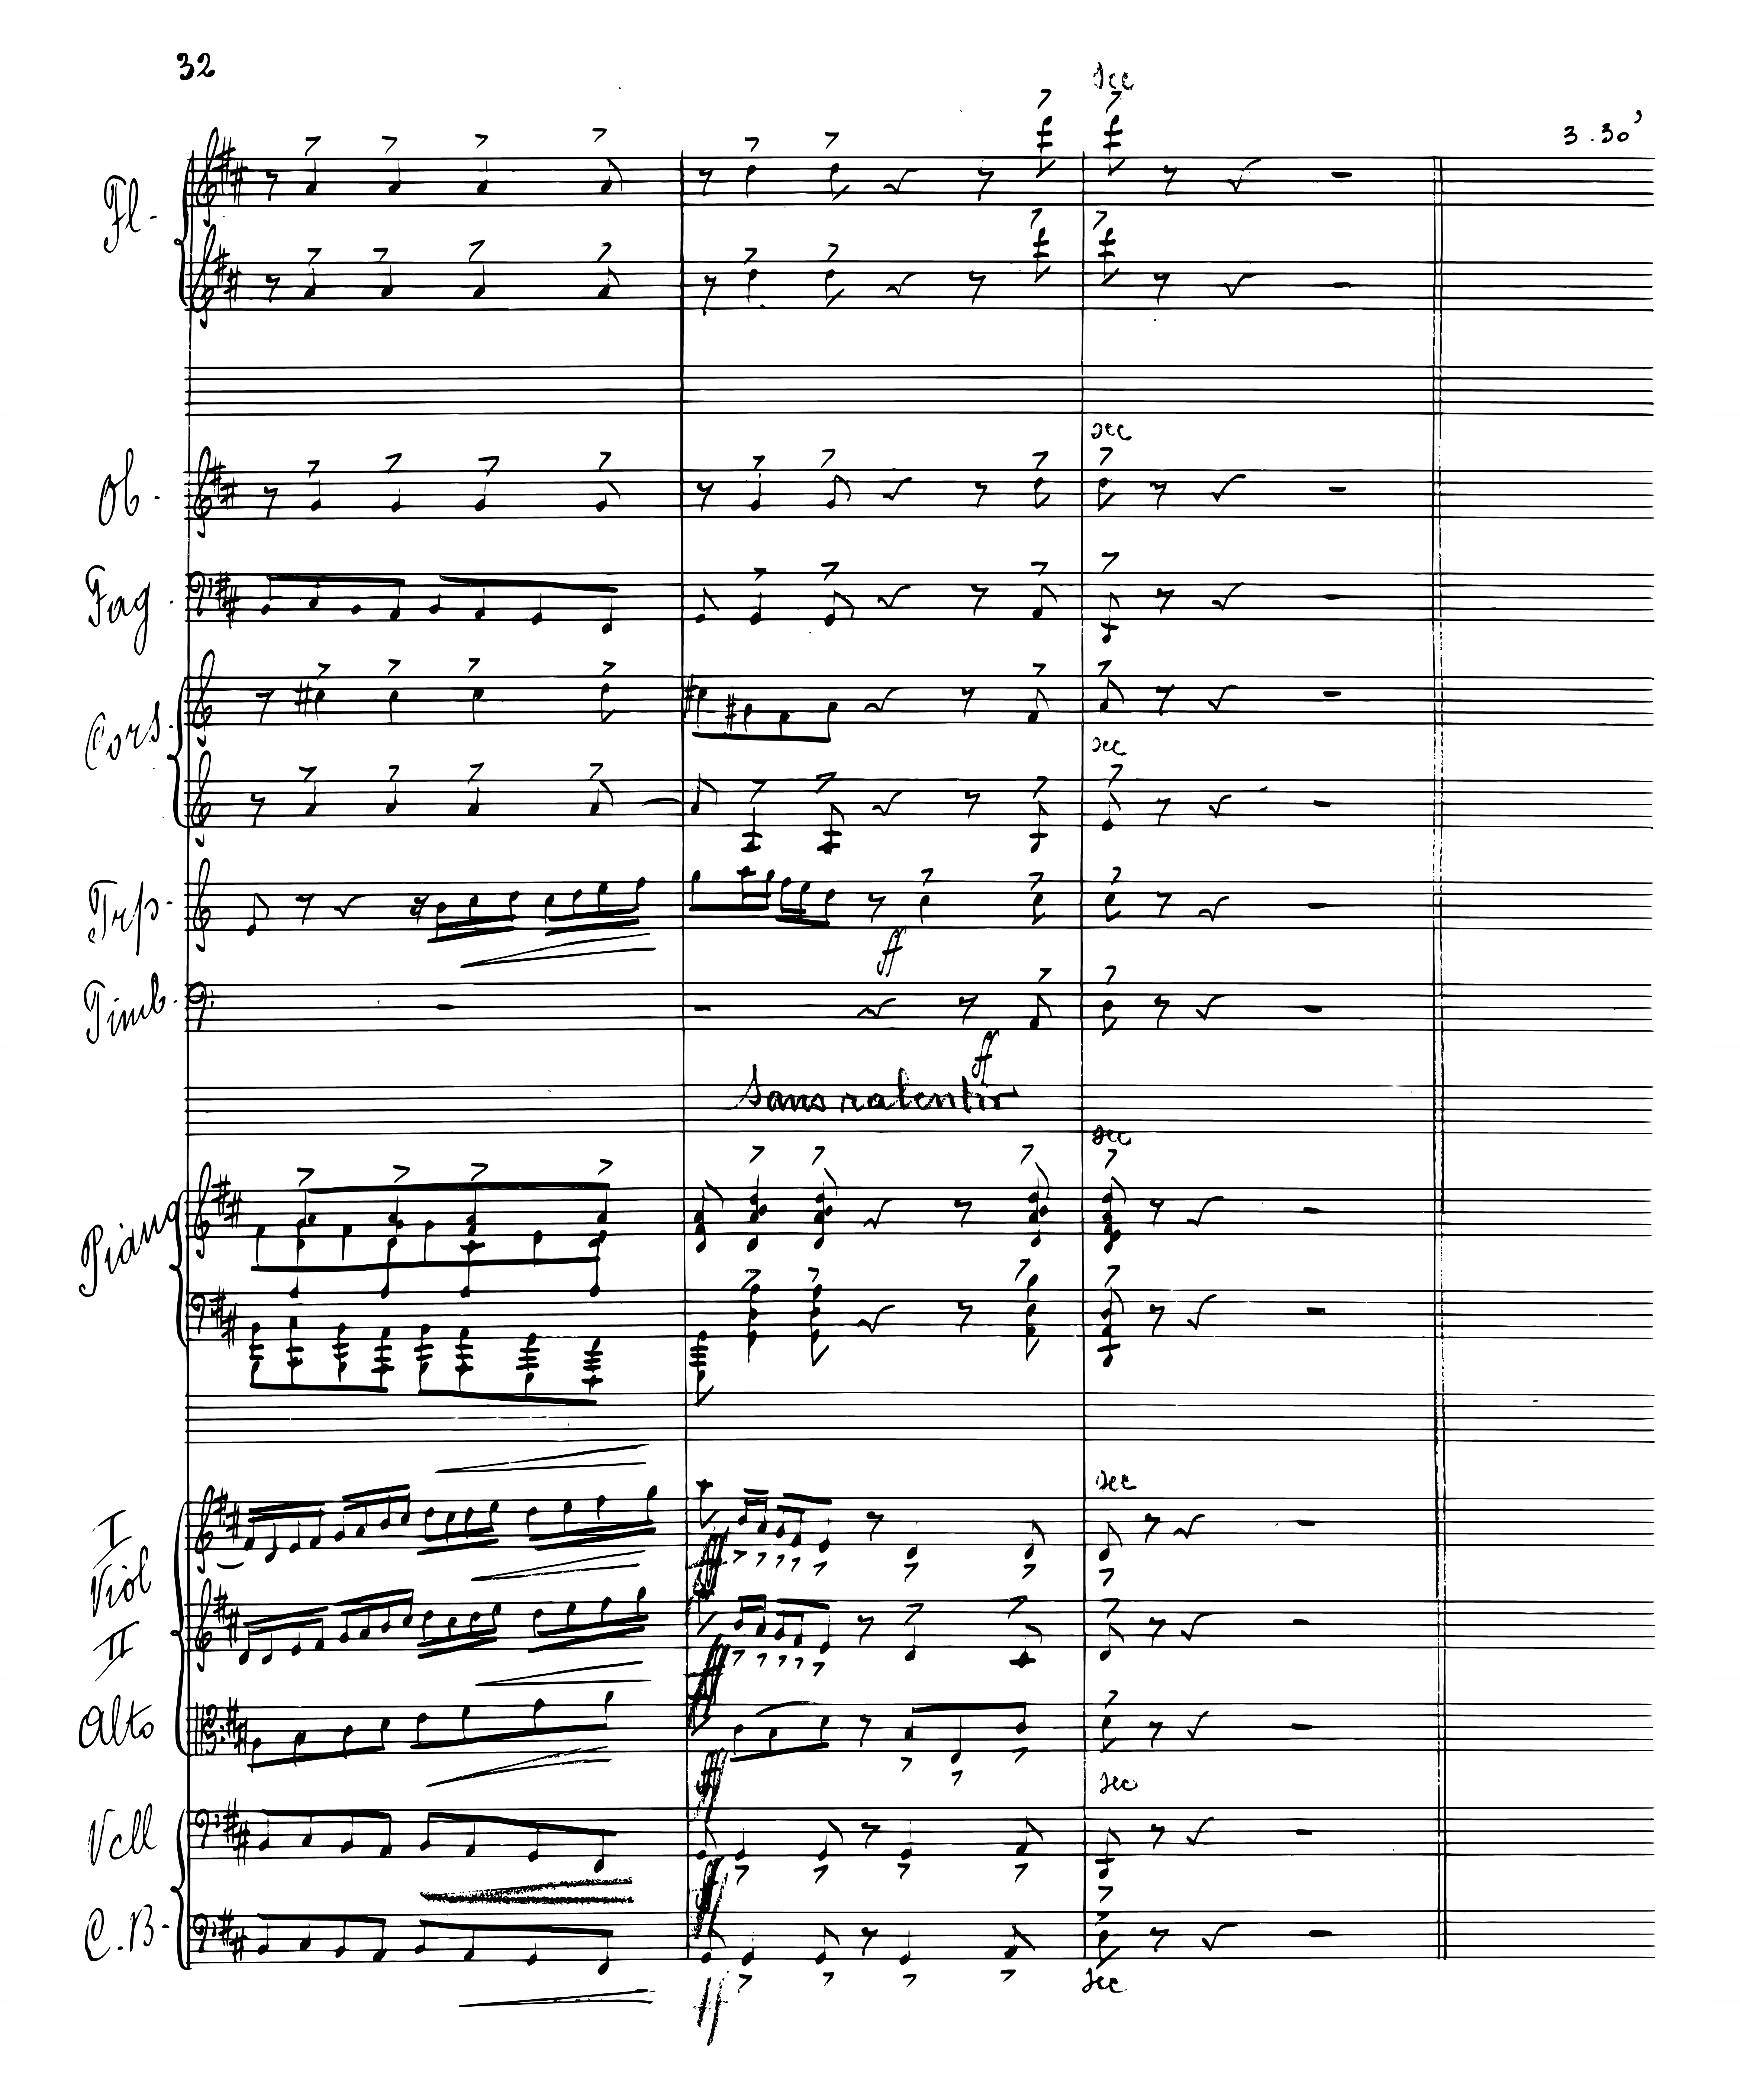 32
sec
3.30'
Fl.
sec
Ob.
Fag.
Cors.
sec
Trp.
ff
Timb.
ff
sans ralentir
sec
Piano
sec
I
Viol
fff
II
fff
Alto
fff
sec
Vcll
ff
C.B.
sec
ff